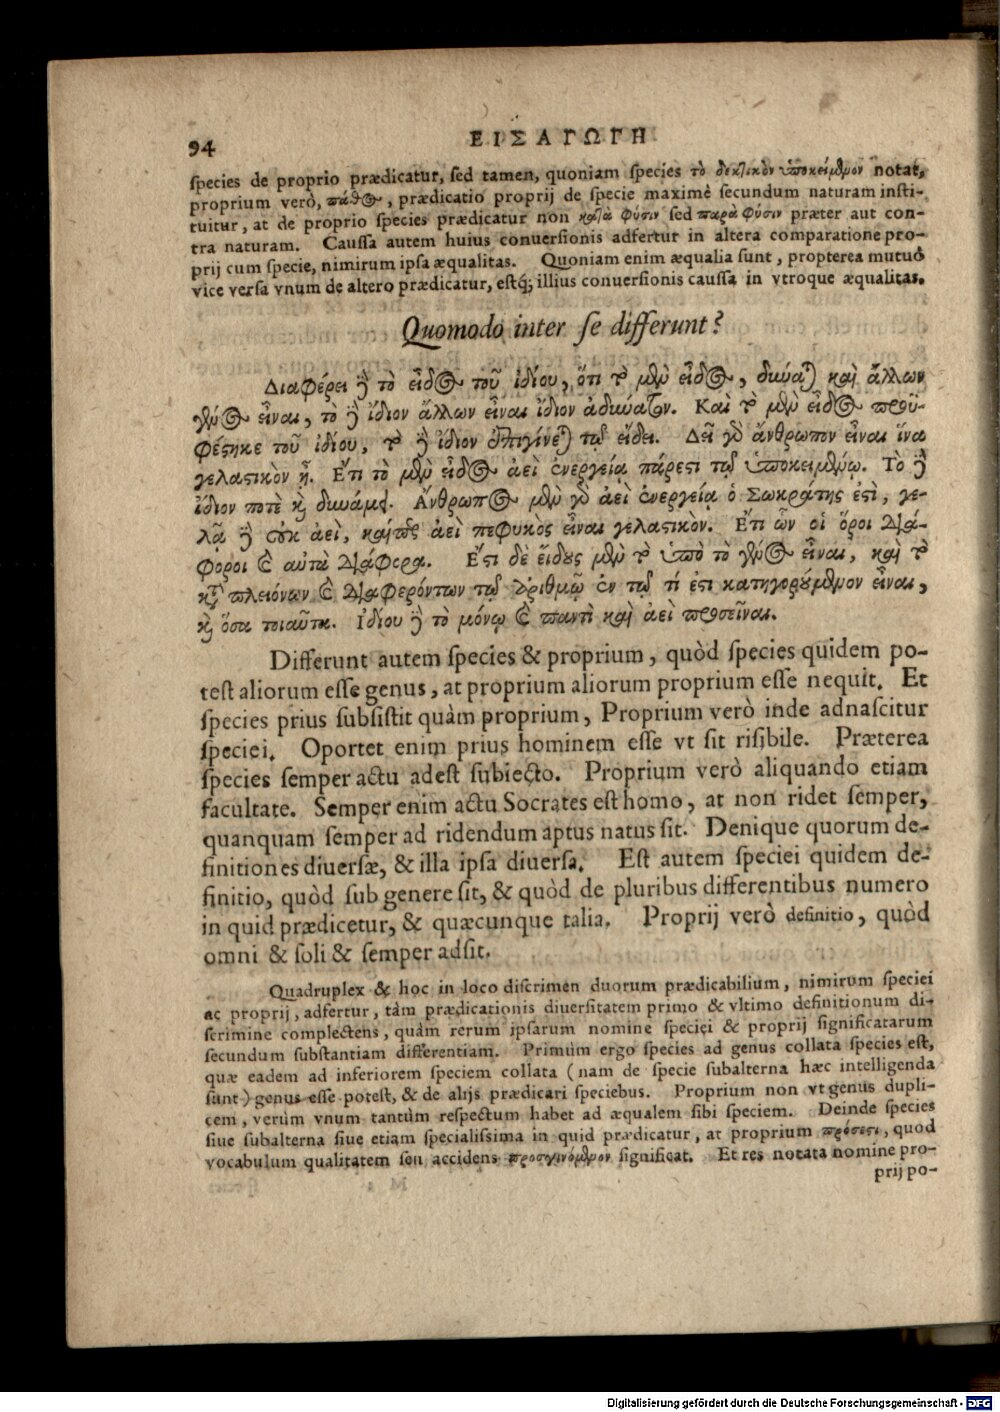 94 ΕΙΣΑΓΩΓΗ
species de proprio prædicatur, sed tamen, quoniam species τὸ δεκτικὸν ὑποκείμενον notat,
proprium verò, πάθος, prædicatio proprij de specie maximè secundum naturam insti-
tuitur, at de proprio species prædicatur non κατὰ φύσιν sed παρὰ φύσιν præter aut con-
tra naturam. Caussa autem huius conuersionis adfertur in altera comparatione pro-
prij cum specie, nimirum ipsa æqualitas. Quoniam enim æqualia sunt, propterea mutuò
vice versa vnum de altero prædicatur, estq́; illius conuersionis caussa in vtroque æqualitas.
Quomodo inter se differunt?
Διαφέρει ἢ τὸ εἶδος τοῦ ἰδίου, ὅτι τὸ μὲν εἶδος, δύναται καὶ ἄλλων
γένος εἶναι, τὸ ἢ ἴδιον ἄλλων εἶναι ἴδιον ἀδύνατον. Καὶ τὸ μὲν εἶδος προϋ-
φέστηκε τοῦ ἰδίου, τὸ ἢ ἴδιον ἐπιγίνεται τῷ εἴδει. Δεῖ γὸ ἄνθρωπον εἶναι ἵνα
γελαστικὸν ᾖ. Ἔτι τὸ μὲν εἶδος ἀεὶ ἐνεργεία πάρεστι τῷ ὑποκειμένῳ. Τὸ ἢ
ἴδιον ποτὲ κὶ δυνάμει. Ἄνθρωπος μὲν γὸ ἀεὶ ἐνεργείᾳ ὁ Σωκράτης ἐστὶ, γε-
λᾷ ἢ οὐκ ἀεὶ, καίτοι ἀεὶ πεφυκὸς εἶναι γελαστικὸν. Ἔτι ὧν οἱ ὅροι διά-
φοροι καὶ αὐτὰ διάφερα. Ἔστι δὲ εἴδους μὲν τὸ ὑπὸ τὸ γένος εἶναι, καὶ τὸ
κατὰ πλειόνων καὶ διαφερόντων τῷ ἀριθμῷ ἐν τῷ τί ἐστι κατηγορούμενον εἶναι,
κὶ ὅσα τοιαῦτα. Ἰδίου ἢ τὸ μόνῳ καὶ παντὶ καὶ ἀεὶ προσεῖναι.
Differunt autem species & proprium, quòd species quidem po-
test aliorum esse genus, at proprium aliorum proprium esse nequit. Et
species prius subsistit quàm proprium, Proprium verò inde adnascitur
speciei. Oportet enim prius hominem esse vt sit risibile. Præterea
species semper actu adest subiecto. Proprium verò aliquando etiam
facultate. Semper enim actu Socrates est homo, at non ridet semper,
quanquam semper ad ridendum aptus natus sit. Denique quorum de-
finitiones diuersæ, & illa ipsa diuersa. Est autem speciei quidem de-
finitio, quòd sub genere sit, & quòd de pluribus differentibus numero
in quid prædicetur, & quæcunque talia. Proprij verò definitio, quòd
omni & soli & semper adsit.
Quadruplex & hoc in loco discrimen duorum prædicabilium, nimirum speciei
ac proprij, adfertur, tàm prædicationis diuersitatem primo & vltimo definitionum di-
scrimine complectens, quàm rerum ipsarum nomine speciei & proprij significatarum
secundum substantiam differentiam. Primùm ergo species ad genus collata species est,
quæ eadem ad inferiorem speciem collata (nam de specie subalterna hæc intelligenda
sunt) genus esse potest, & de alijs prædicari speciebus. Proprium non vt genus dupli-
cem, verùm vnum tantùm respectum habet ad æqualem sibi speciem. Deinde species
siue subalterna siue etiam specialissima in quid prædicatur, at proprium πρόσεστι, quod
vocabulum qualitatem seu accidens προσγινόμενον significat. Et res notata nomine pro-
prij po-
Digitalisierung gefördert durch die Deutsche Forschungsgemeinschaft - DFG